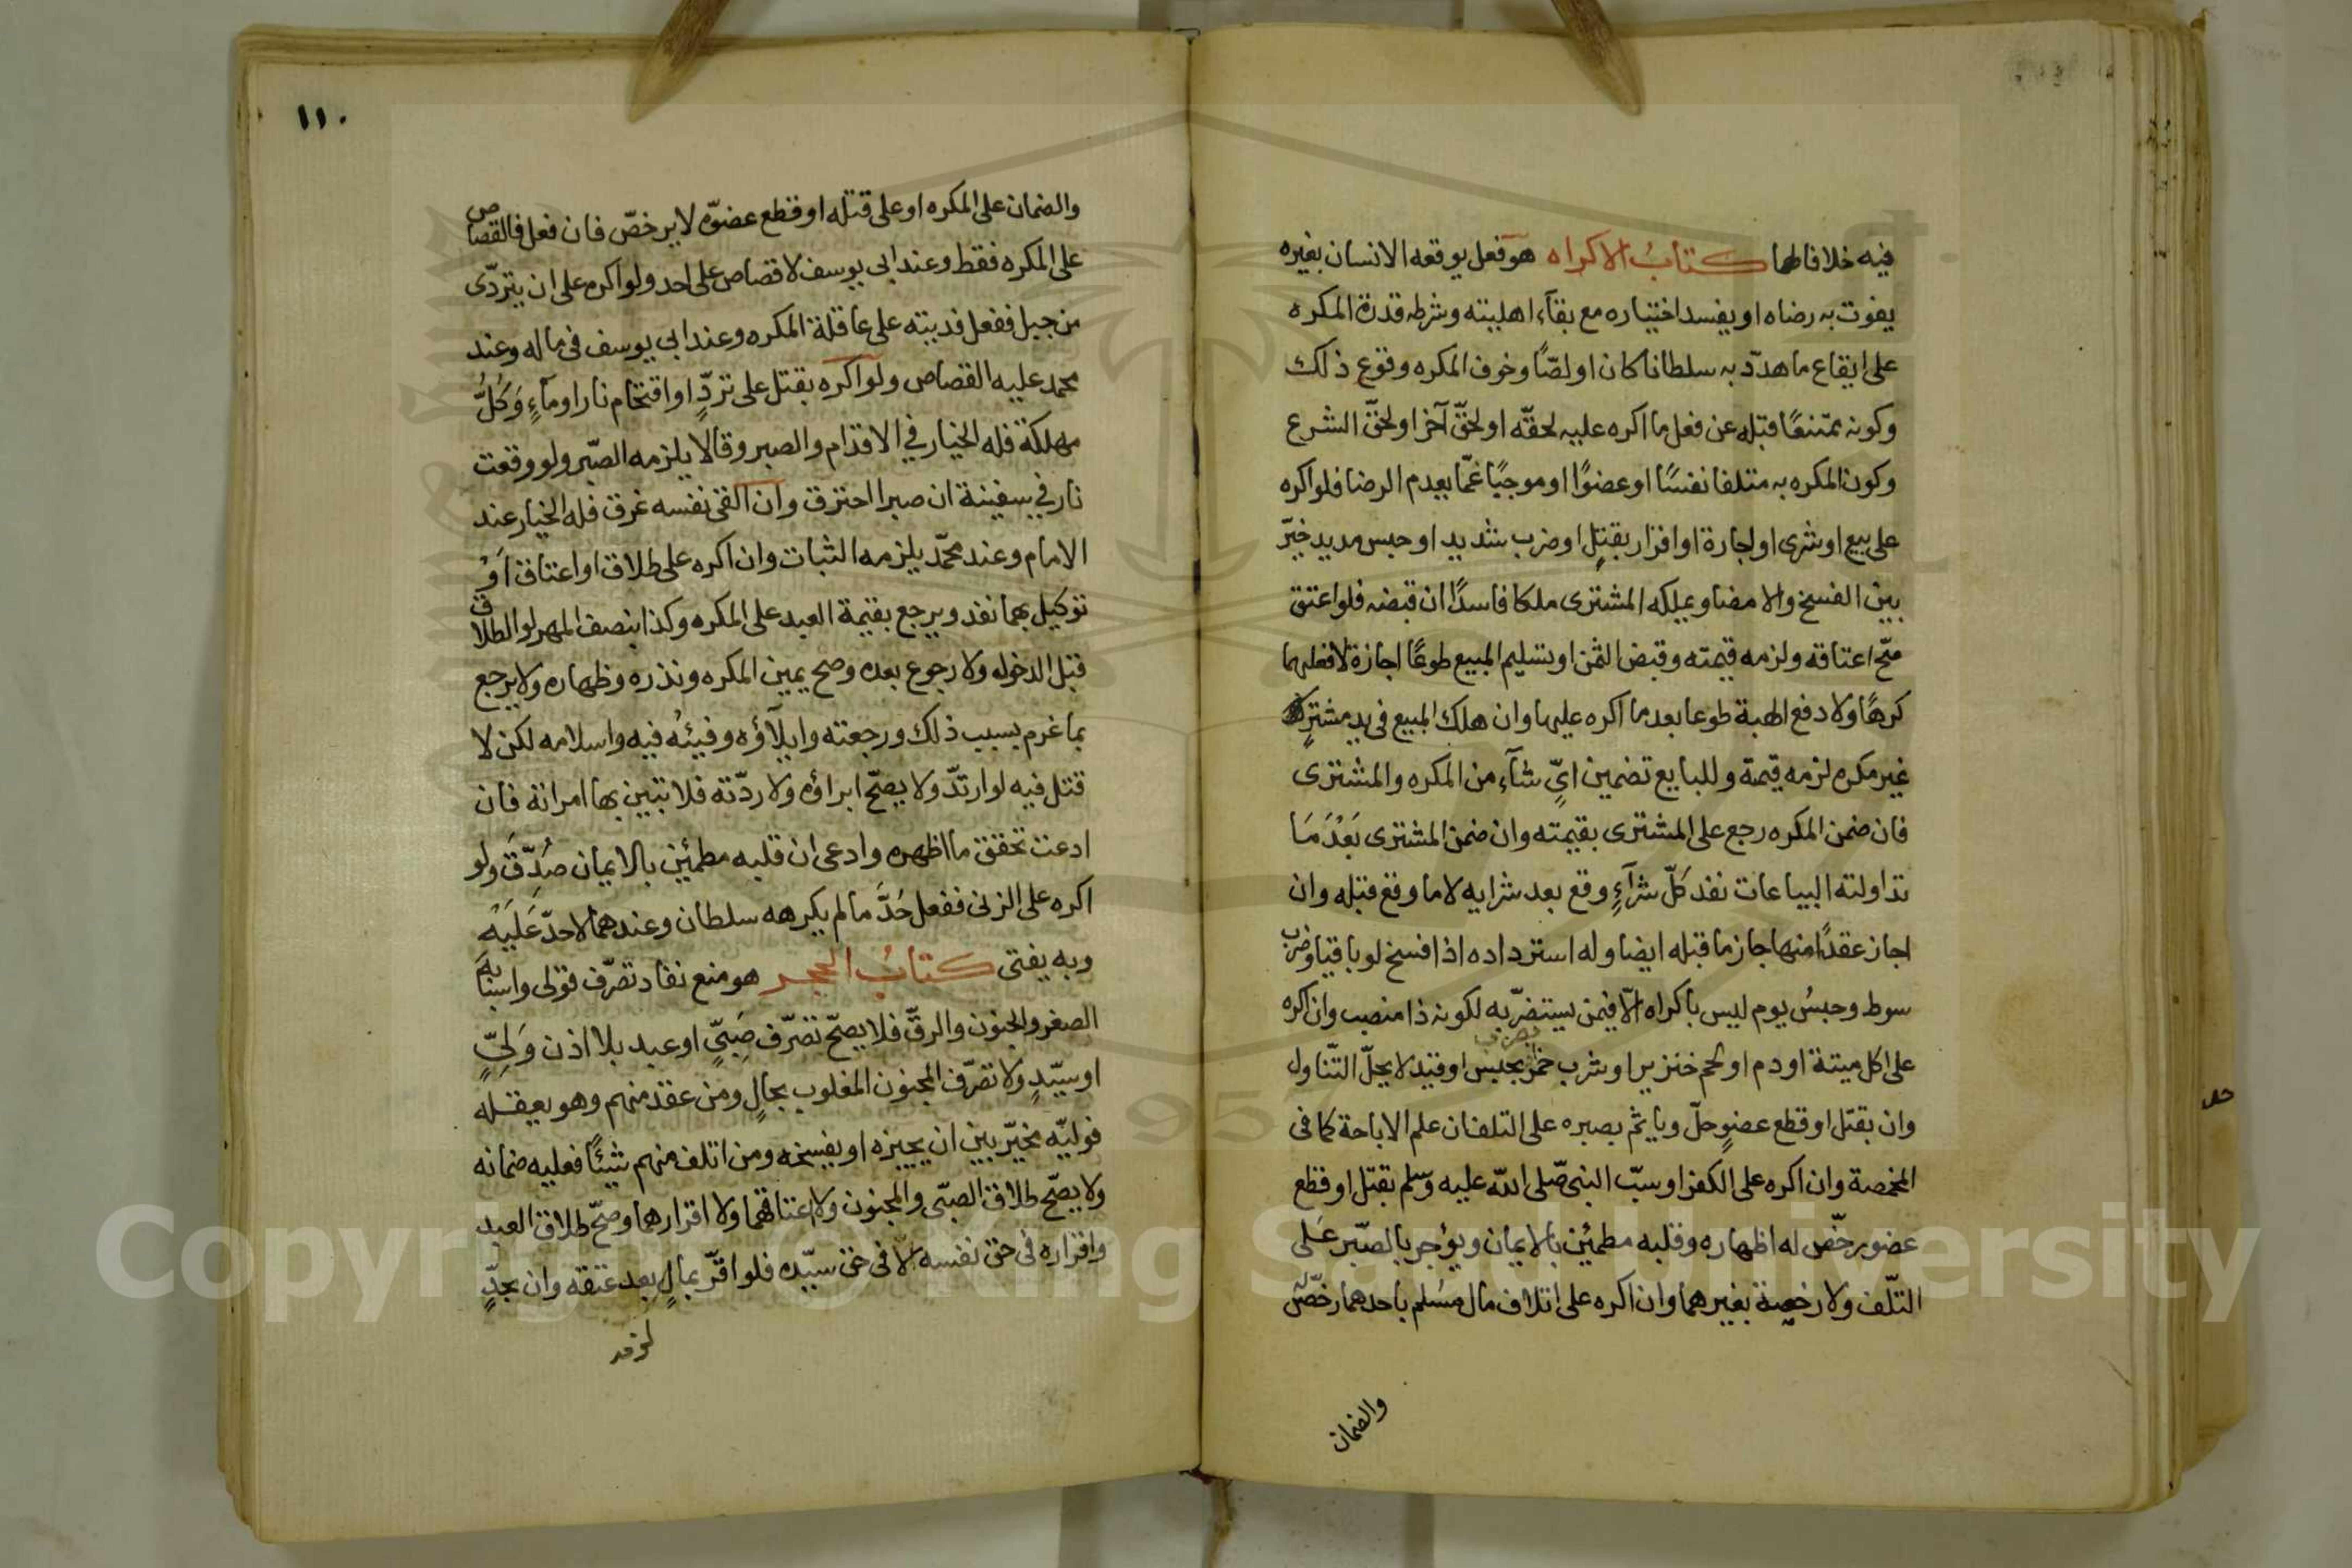 فيه خلافا لهما كتاب الاكراه هو فعل يوقعه الانسان بغيره
يفوت به رضاه او يفسد اختياره مع بقاء اهليته وشرطه قدرة المكره
على ايقاع ما هدّد به سلطانا كان او لصّا وخوف المكره وقوع ذلك
وكونه ممتنعًا قبله عن فعل ما اكره عليه لحقّه او لحقّ آخر او لحقّ الشرع
وكون المكره به متلفا نفسًا او عضوًا او موجبًا غمّا يعدم الرضا فلو اكره
على بيع او شرى او اجارة او اقرار بقتل او ضرب شديد او حبس مديد خيّر
بين الفسخ والامضا ويملكه المشترى ملكا فاسدًا ان قبضه فلو اعتق
صحّ اعتاقه ولزمه قيمته وقبض الثمن او تسليم المبيع طوعًا اجازة لا فعلهما
كرهًا ولا دفع الهبة طوعا بعد ما اكره عليها وان هلك المبيع فى يد مشترٍ
غير مكره لزمه قيمة وللبايع تضمين اىّ شآء من المكره والمشترى
فان ضمن المكره رجع على المشترى بقيمته وان ضمن المشترى بَعْدَ مَا
تداولته البياعات نفد كلّ شرآءٍ وقع بعد شرايه لا ما وقع قبله وان
اجاز عقدًا منها جاز ما قبله ايضا وله استرداده اذا فسخ لو باقيا وضرب
سوط وحبسُ يوم ليس باكراه الّا فيمن يستضرّ به لكونه ذا منصب وان اكره
على اكل ميتة او دم او لحم خنزير او شرب خمر بحبس او قيد لا يحلّ التّناول
وان بقتل او قطع عضوٍ حلّ وياثم بصبره على التلف ان علم الاباحة كما فى
المخمصة وان اكره على الكفر او سبّ النبى صّلى اللّه عليه وسلم بقتل او قطع
عضو رخّص له اظهاره وقلبه مطمئن بالايمان ويؤجر بالصّبر عَلى
التّلف ولا رخصة بغيرهما وان اكره على اتلاف مال مسلم باحدهما رخّص له
والضمان
١١٠
والضمان على المكره او على قتله او قطع عضوه لا يرخصّ فان فعل فالقصاص
على المكره فقط وعند ابى يوسف لا قصاص على احد ولو اكره على ان يتردّى
من جبل ففعل فديته على عاقلة المكره وعند ابى يوسف فى ماله وعند
محمد عليه القصاص ولو اكره بقتل على تردٍّ او اقتحام نار او مآءٍ وَكُلُّ
مهلكة فله الخيار في الاقدام والصبر وقالا يلزمه الصّبر ولو وقعت
نار في سفينة ان صبر احترق وان القى نفسه غرق فله الخيار عند
الامام وعند محمّد يلزمه الثبات وان اكره على طلاق او اعتاق اَوْ
توكيل بهما نفد ويرجع بقيمة العبد على المكره وكذا بنصف المهر لو الطلاق
قبل الدخول ولا رجوع بعده وصح يمين المكره ونذره وظهاره ولا يرجع
بما غرم بسبب ذلك ورجعته وايلآؤه وفيئُه فيه واسلامه لكن لا
قتل فيه لو ارتدّ ولا يصحّ ابراؤه ولا ردّته فلا تبين بها امراته فان
ادعت تحقق ما اظهره وادعى ان قلبه مطمئن بالايمان صُدِّقَ ولو
اكره على الزنى ففعل حُدَّ ما لم يكرهه سلطان وعندهما لا حدّ عَلَيْه
وبه يفتى كتاب الحجر هو منع نفاد تصرّف قولى واسبابه
الصغر والجنون والرقّ فلا يصحّ تصرّف صَبىٍّ او عبد بلا اذن وَلِىّ
او سيّدٍ ولا تصرّف المجنون المغلوب بحالٍ ومن عقد منهم وهو يعقله
فوليّه مخيّر بين ان يجيزه او يفسخه ومن اتلف منهم شيئًا فعليه ضمانه
ولا يصّح طلاق الصبّى والمجنون ولا اعتاقهما ولا اقرارهما وصحّ طلاق العبد
واقراره فى حق نفسه لا فى حق سيّده فلو اقرّ بمالٍ بعد عتقه وان بحدٍّ
Copyright © King Saud University